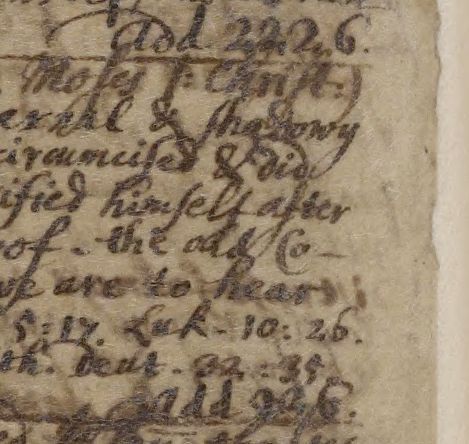 add 2.4.2.6.
Moses (: Christ:)
ernal & shadowy
circumcised & did
ified himself after
of - the old Co-
we are to hear
5:17. Luk. 10:26.
th. Deut. 32:35.
add